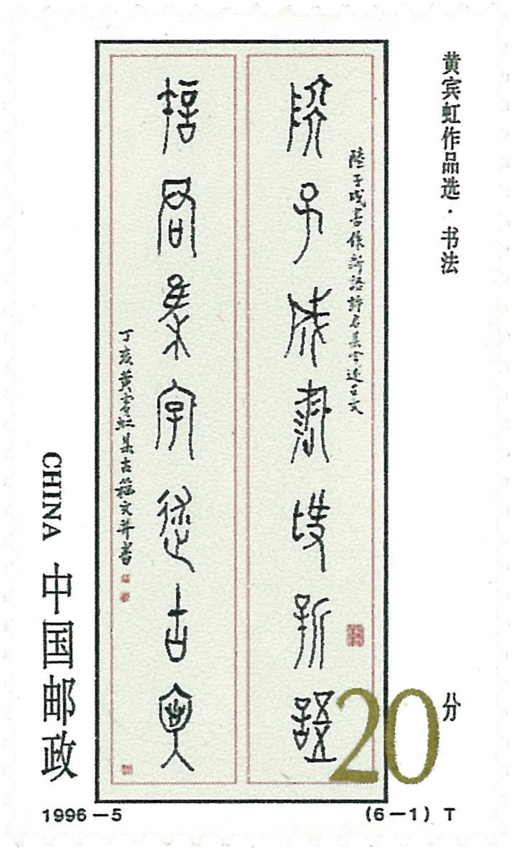 黄宾虹作品选·书法
陸子成書作新語許君集字述古文
陸子成書作新語
許君集字述古文
丁亥黃賓虹集古籀文并書
CHINA 中国邮政
20分
1996－5
(6－1) T